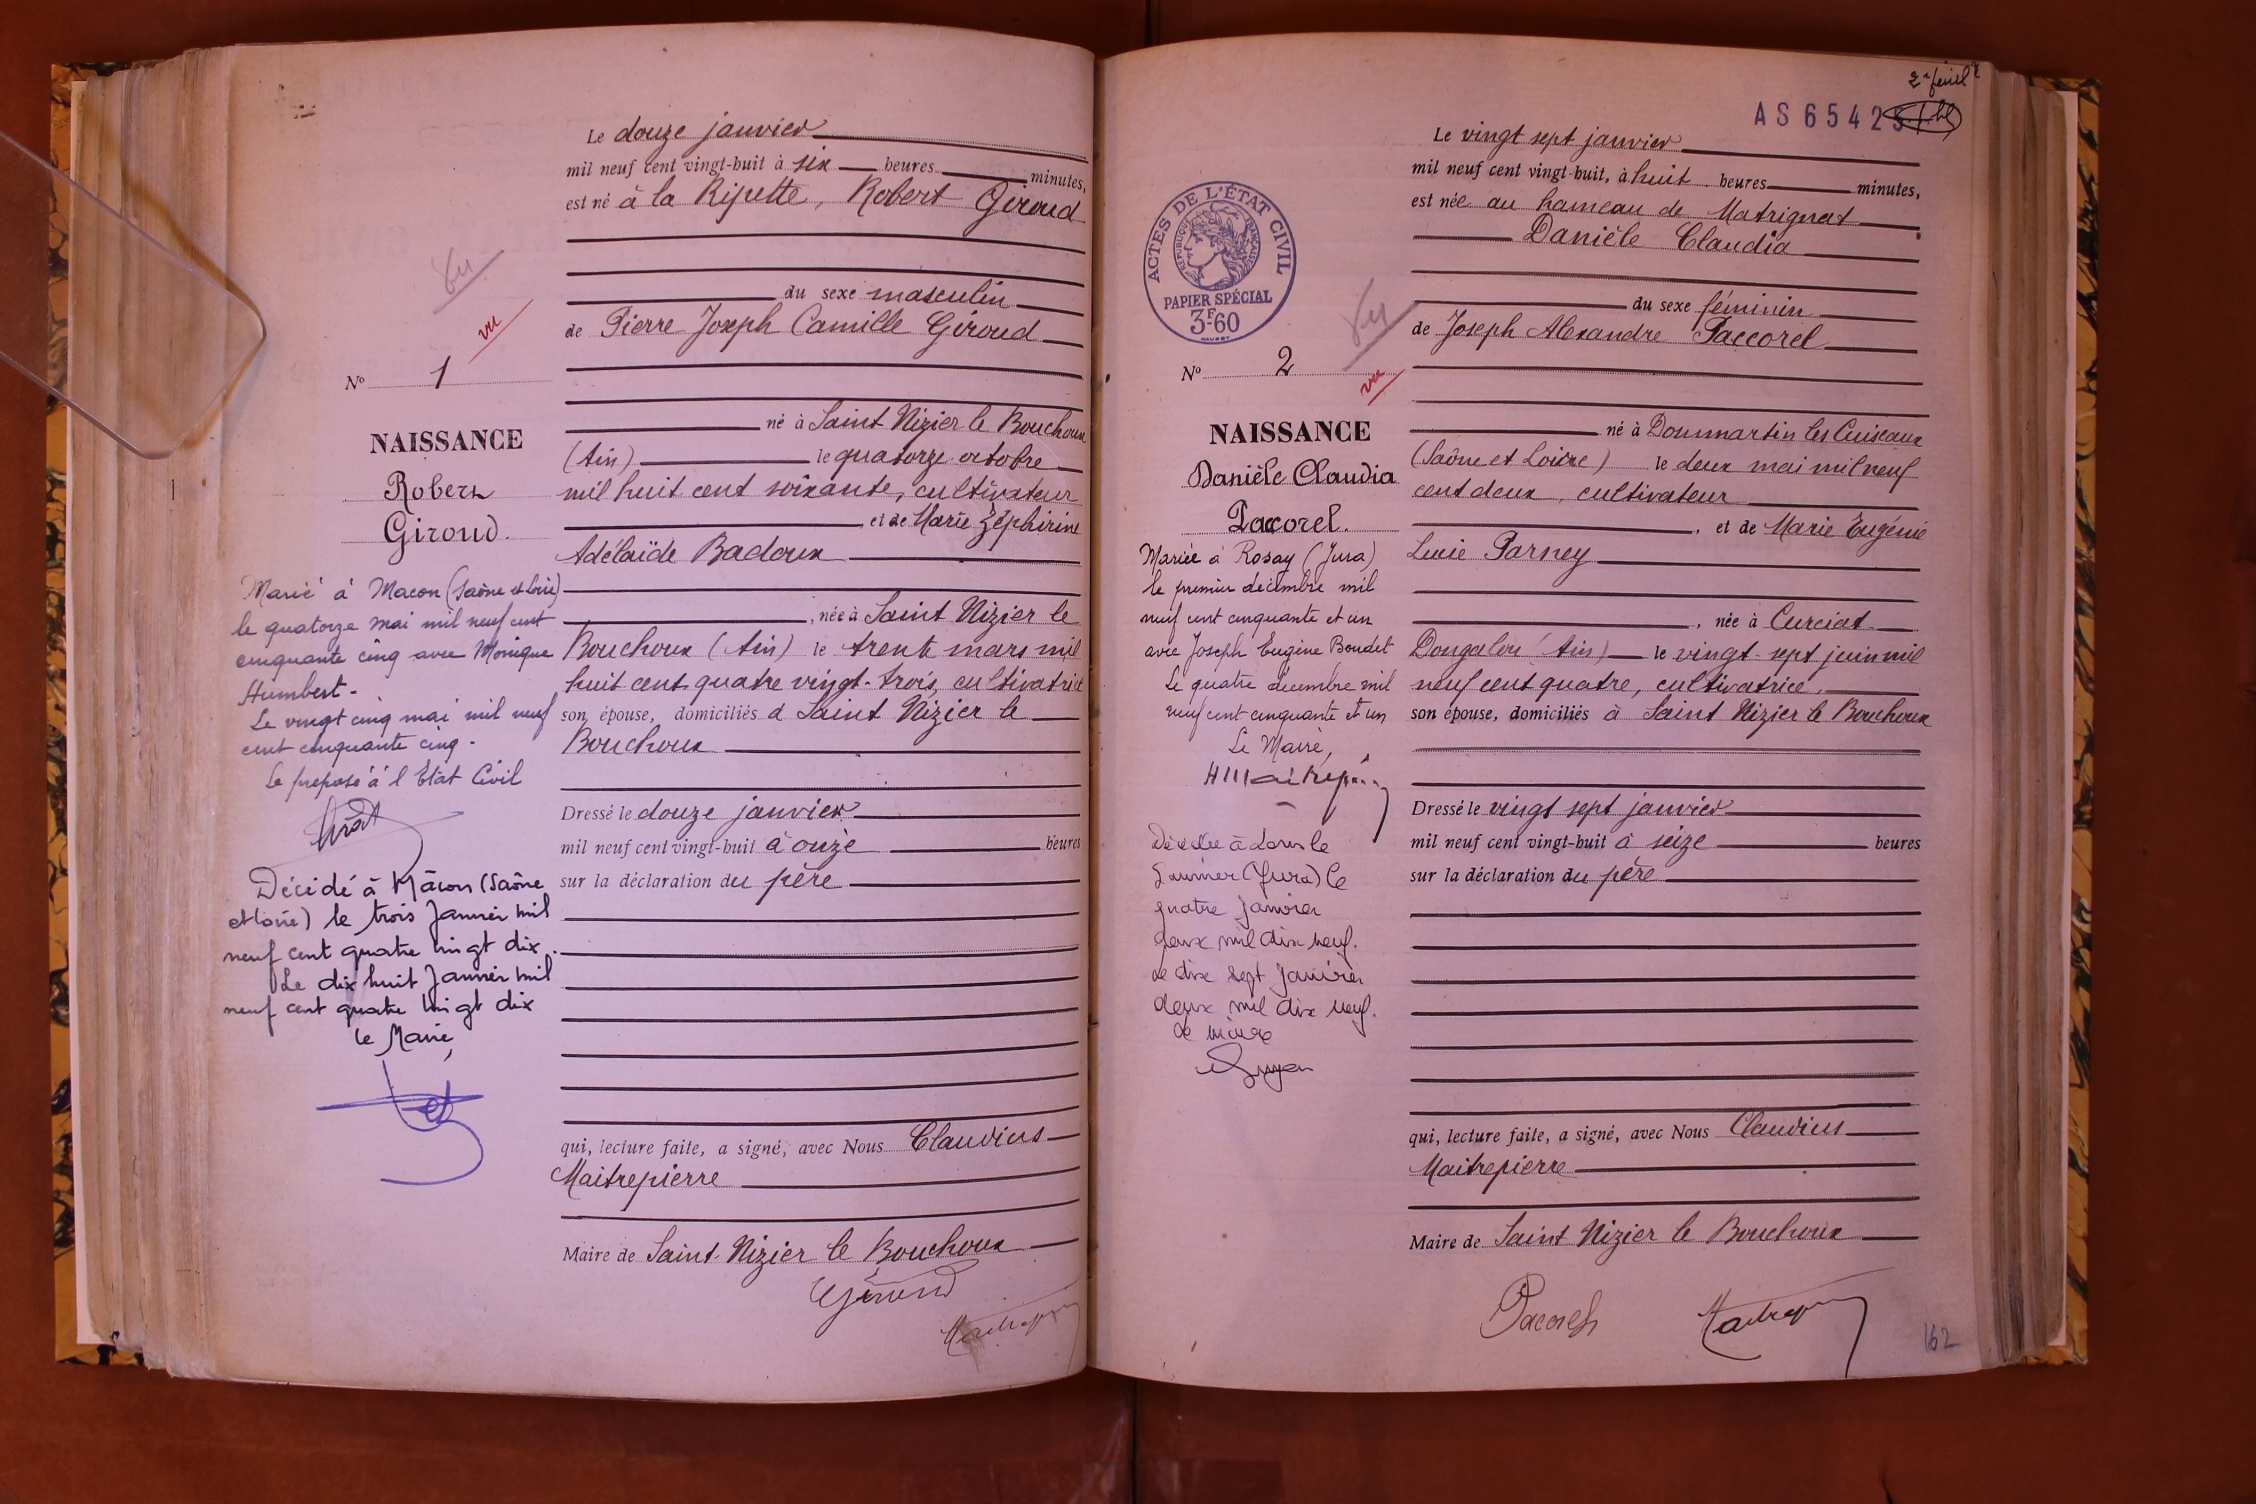 Le douze janvier
mil neuf cent vingt-huit à six heures minutes,
est né à la Ripette, Robert Giroud
du sexe masculin
de Pierre Joseph Camille Giroud
né à Saint Nizier le Bouchoux
(Ain) le quatorze octobre
mil huit cent soixante, cultivateur
et de Marie Zéphirine
Adélaïde Badoux
, née à Saint Nizier le
Bouchoux (Ain) le trente mars mil
huit cent quatre vingt-trois, cultivatrice
son épouse, domiciliés à Saint Nizier le
Bouchoux
Dressé le douze janvier
mil neuf cent vingt-huit à onze heures
sur la déclaration du père
qui, lecture faite, a signé, avec Nous Claudius
Maitrepierre
Maire de Saint-Nizier le Bouchoux
Giroud
vu
vu
No 1
NAISSANCE
Robert
Giroud.
Marié à Macon (Saône et Loire)
le quatorze mai mil neuf cent
cinquante cinq avec Monique
Humbert-
Le vingt cinq mai mil neuf
cent cinquante cinq.
Le préposé à l'Etat Civil
Décidé à Mâcon (Saône
et Loire) le trois Janvier mil
neuf cent quatre vingt dix.
Le dix huit Janvier mil
neuf cent quatre vingt dix
le Maire,
2e feuille
AS 6542
ACTES DE L'ÉTAT CIVIL
RÉPUBLIQUE FRANÇAISE
PAPIER SPÉCIAL
3F-60
vu
vu
No 2
NAISSANCE
Danièle Claudia
Paccorel.
Mariée à Rosay (Jura)
le premier décembre mil
neuf cent cinquante et un
avec Joseph Eugène Boudet
Le quatre décembre mil
neuf cent cinquante et un
Le Maire,
Décédée à Lons le
Saunier (Jura) le
quatre Janvier
deux mil dix neuf.
Le dix sept Janvier
deux mil dix neuf.
Le vingt sept janvier
mil neuf cent vingt-huit, à huit heures minutes,
est née au hameau de Matrignat
Danièle Claudia
du sexe féminin
de Joseph Alexandre Paccorel
né à Dommartin les Cuiseaux
(Saône et Loire) le deux mai mil neuf
cent deux, cultivateur
, et de Marie Eugénie
Lucie Parney
, née à Curciat
Dongalon (Ain) le vingt-sept juin mil
neuf cent quatre, cultivatrice,
son épouse, domiciliés à Saint Nizier le Bouchoux
Dressé le vingt sept janvier
mil neuf cent vingt-huit à seize heures
sur la déclaration du père
qui, lecture faite, a signé, avec Nous Claudius
Maitrepierre
Maire de Saint Nizier le Bouchoux
Paccorel
162